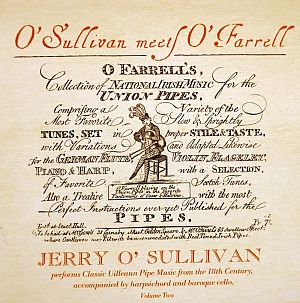 O'Sullivan meets O'Farrell
O FARRELL'S,
Collection of NATIONAL IRISH MUSIC for the
UNION PIPES,
Comprising a Variety of the
Most Favorite Slow & Sprightly
TUNES, SET in proper STILE & TASTE,
with Variations and Adapted Likewise
for the GERMAN FLUTE, VIOLIN, FLAGELET,
PIANO & HARP, with a SELECTION,
of Favorite Scotch Tunes,
Also a Treatise with the most
Perfect Instructions ever yet Published for the
PIPES.
JERRY O'SULLIVAN
performs Classic Uilleann Pipe Music from the 18th Century,
accompanied by harpsichord and baroque cello.
Volume Two